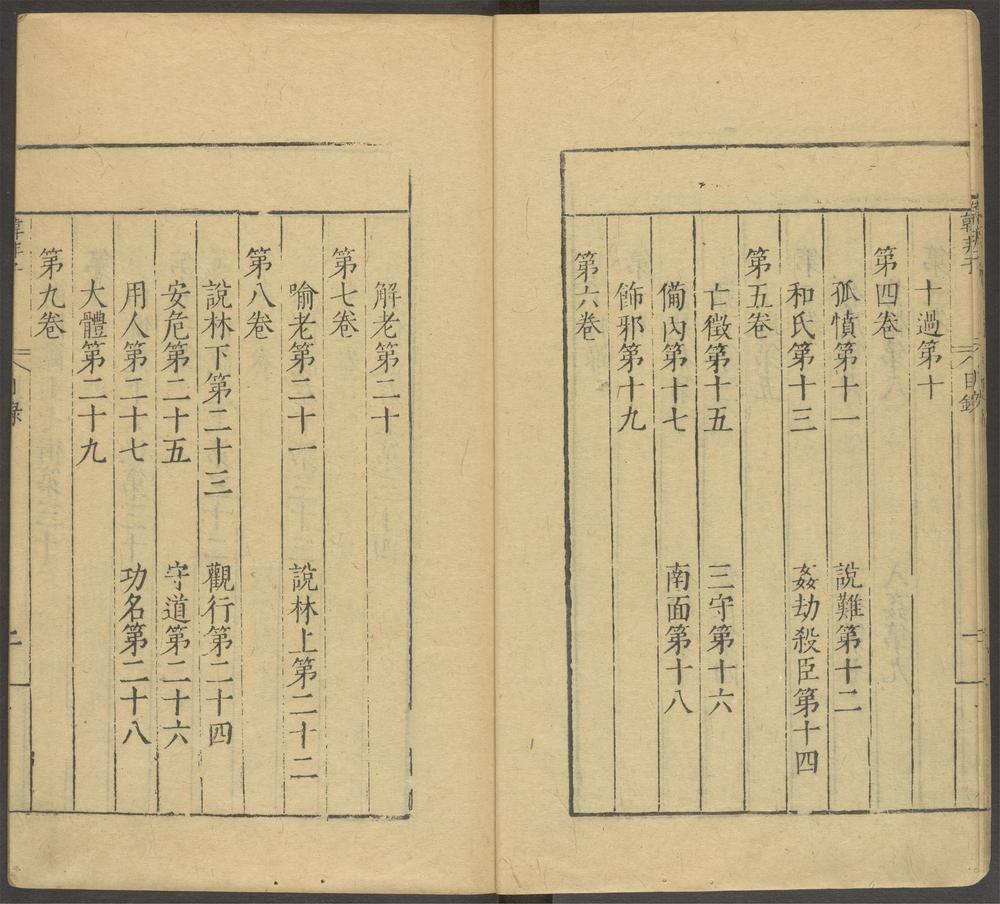 韓非子
目錄
一
十過第十
第四卷
孤憤第十一　說難第十二
和氏第十三　姦劫殺臣第十四
第五卷
亡徵第十五　三守第十六
備內第十七　南面第十八
飾邪第十九
第六卷
解老第二十
第七卷
喻老第二十一　說林上第二十二
第八卷
說林下第二十三　觀行第二十四
安危第二十五　守道第二十六
用人第二十七　功名第二十八
大體第二十九
第九卷